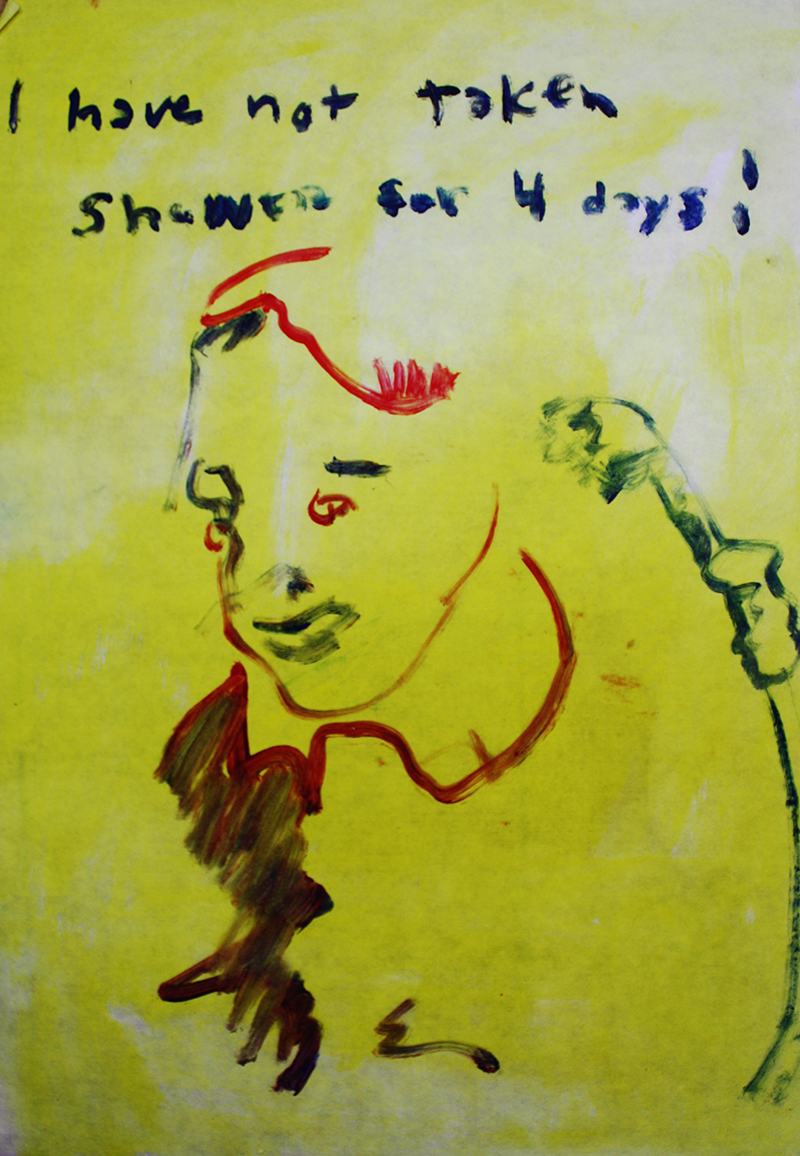 I have not taken
shower for 4 days!